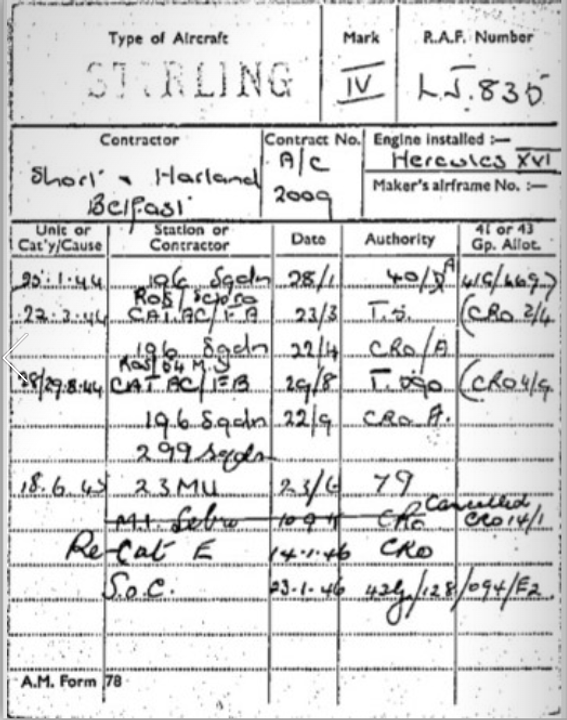 Type of Aircraft Mark R.A.F. Number
STIRLING IV LJ.835
Contractor Contract No. Engine installed :—
Short & Harland A/C Hercules XVI
Belfast 2009 Maker's airframe No. :—
Unit or Cat'y/Cause Station or Contractor Date Authority 41 or 43 Gp. Allot.
25.1.44 196 Sqdn 28/1 40/ 41G/
ROS/
22.3.44 CAT.AC/FA 23/3 T.S. (CRO 2/4
196 Sqdn 22/4 CRO/A
ROS/ M.S
28/29.8.44 CAT AC/FB 29/8 (CRO 4/9
196 Sqdn 22/9 CRO A.
299 Sqdn
18.6.45 23 MU 23/6 79
Cancelled
CRO CRO 14/1
Re-Cat E 14.1.46 CRO
S.o.C. 23.1.46 /128/094/E2
A.M. Form 78